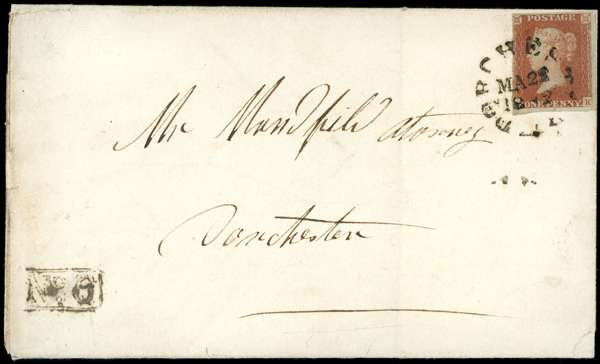 POSTAGE
ONE PENNY
DORCHES
MA 2
Mr Mansfield Attorney
Dorchester
No 6